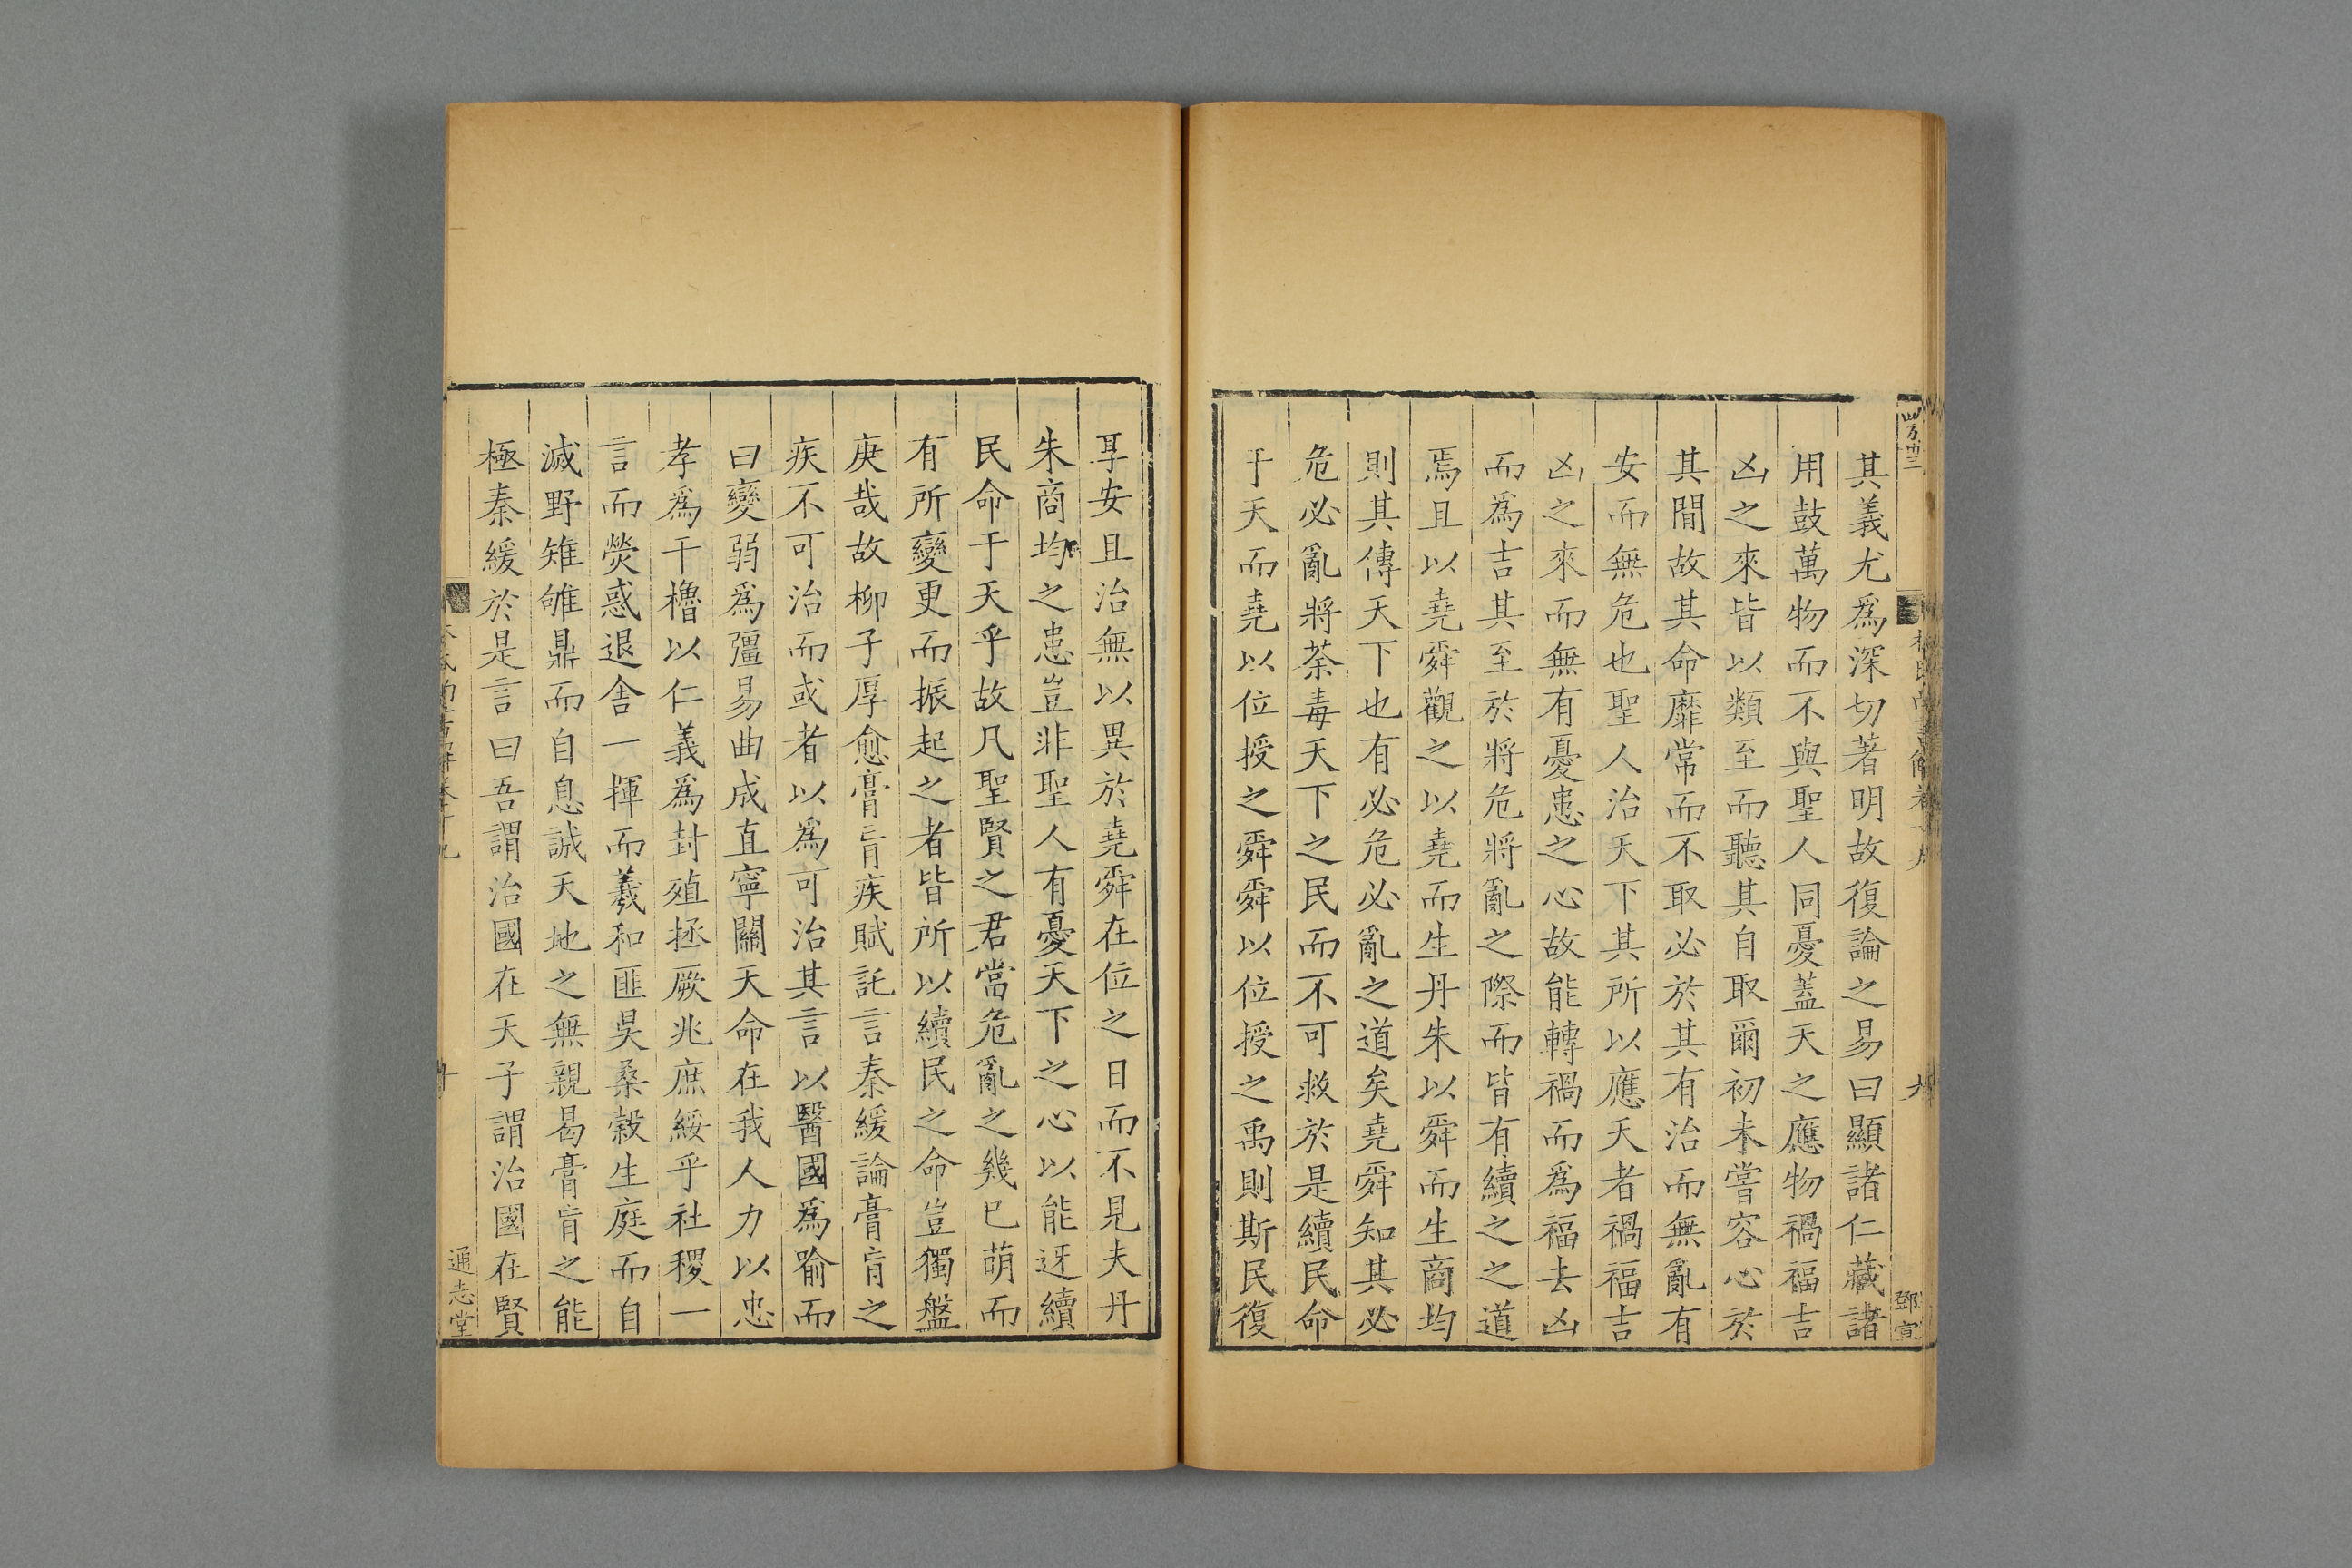 其義尤爲深切著明故復論之易曰顯諸仁藏諸
用鼓萬物而不與聖人同憂蓋天之應物禍福吉
凶之來皆以類至而聽其自取爾初未嘗容心於
其間故其命靡常而不取必於其有治而無亂有
安而無危也聖人治天下其所以應天者禍福吉
凶之來而無有憂患之心故能轉禍而爲福去凶
而爲吉其至於將危將亂之際而皆有續之之道
焉且以堯舜觀之以堯而生丹朱以舜而生商均
則其傳天下也有必危必亂之道矣堯舜知其必
危必亂將荼毒天下之民而不可救於是續民命
于天而堯以位授之舜舜以位授之禹則斯民復
鄧宣
享安且治無以異於堯舜在位之日而不見夫丹
朱商均之患豈非聖人有憂天下之心以能迓續
民命于天乎故凡聖賢之君當危亂之幾已萌而
有所變更而振起之者皆所以續民之命豈獨盤
庚哉故柳子厚愈膏肓疾賦託言秦緩論膏肓之
疾不可治而或者以爲可治其言以醫國爲喻而
曰變弱爲彊易曲成直寧關天命在我人力以忠
孝爲干櫓以仁義爲封殖拯厥兆庶綏乎社稷一
言而熒惑退舍一揮而羲和匪昃桑榖生庭而自
滅野雉雊鼎而自息誠天地之無親曷膏肓之能
極秦緩於是言曰吾謂治國在天子謂治國在賢
通志堂